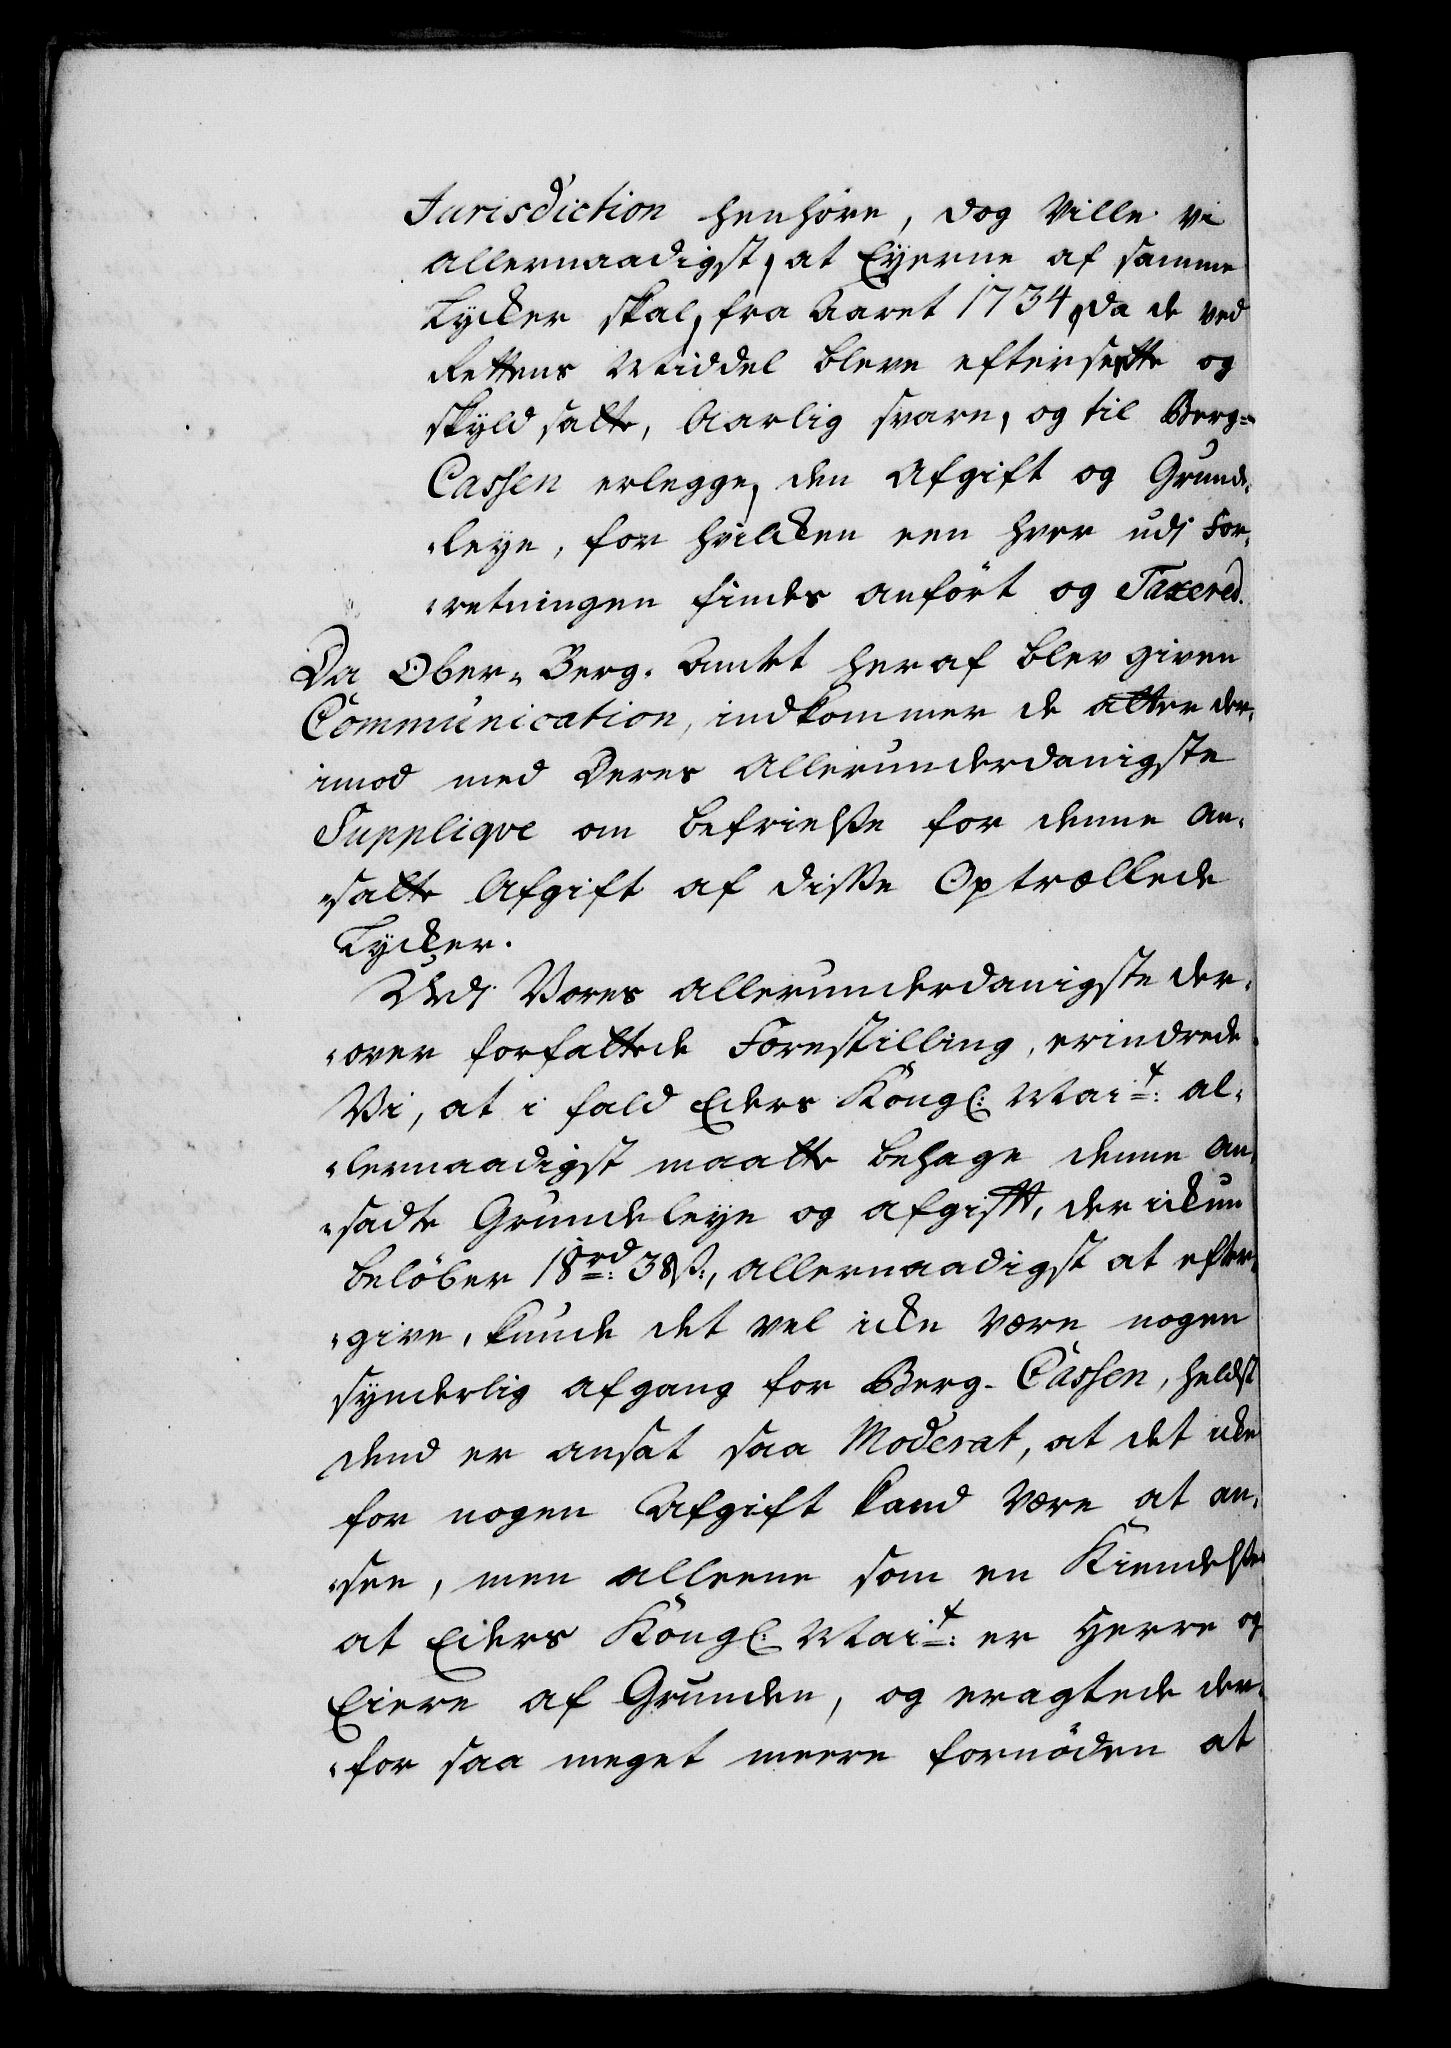 Jurisdiction henhöre, dog Ville vi
allernaadigst, at Eyerne af samme
Lycker skal, fra Aaret 1734, da de ved
Rettens Middel bleve eftersette og
skyldsatte, Aarlig svare, og til Berg-
Cassen erlegge, den Afgift og Grunde-
leye, for hvilcken een hver udj For-
retningen findes anfört og Taxered.
Da Ober-Berg-Amtet heraf blev given
Communication, indkommer de atter der-
imod med Deres allerunderdanigste
Supplique om befrielse for denne an-
satte Afgift af disse Optrællede
Lycker.
Udj Vores allerunderdanigste der-
over forfattede Forestilling, erindrede
Vi, at i fald Eders Kongl: Mait: al-
lernaadigst maatte behage denne an-
sadte Grundeleye og afgift, der ickun
beløber 18rd: 38 s:, allernaadigst at efter-
give, kunde det vel icke være nogen
synderlig afgang for Berg-Cassen, heldst
dend er ansat saa Moderat, at det icke
for nogen Afgift kand være at an-
see, men alleene som en Kiendelse
at Eders Kongl: Mait: er Herre og
Eiere af Grunden, og eragtede der-
for saa meget meere fornöden at